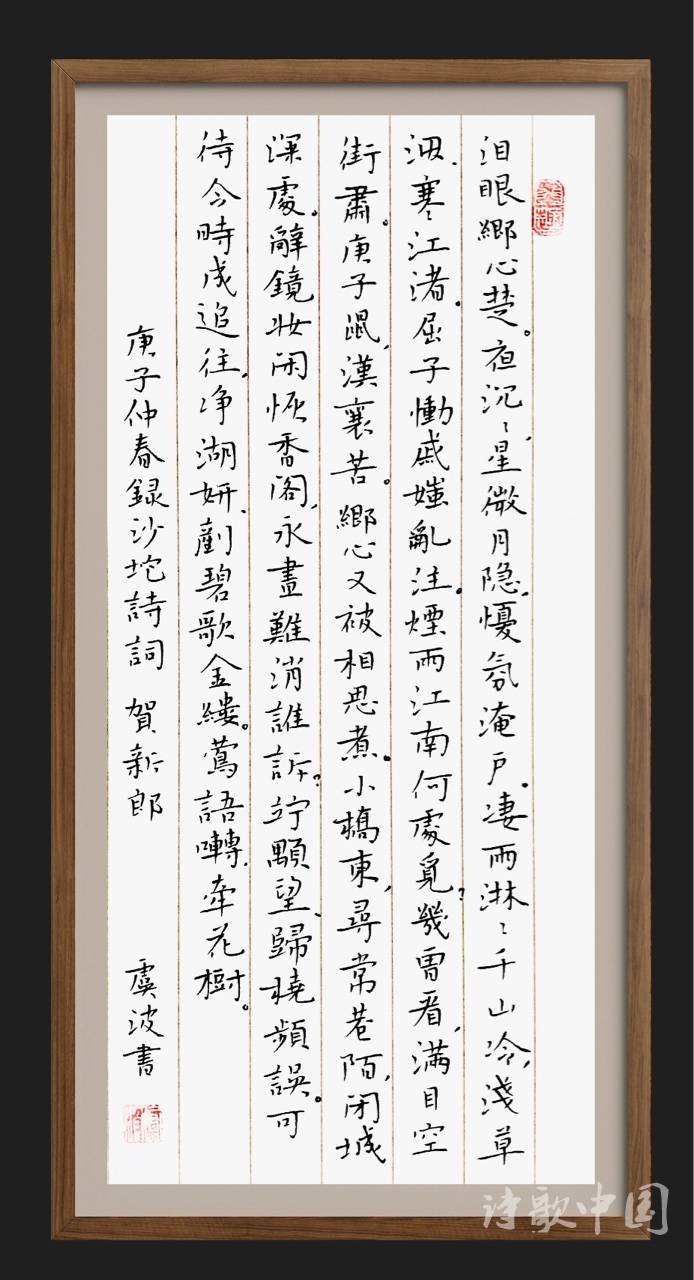 泪眼鄉心楚。夜沉、星微月隐。憂氛淹戶。凄雨淋、千山冷，淺草
泅、寒江渚。屈子慟戚嗤亂注。煙雨江南何處覓？幾曾看，滿目空
街肅。庚子鼠，漢襄苦。鄉心又被相思煮。小橋東，尋常巷陌，閉城
深處。辭鏡妝閑恢香閣，永晝難消誰訴？竚顒望、歸橈頻誤。可
待今時成追往，净湖妍、剷碧歌金縷。鶯語囀，牽花樹。
庚子仲春録沙坨詩詞 賀新郎
虞波書
诗歌中国